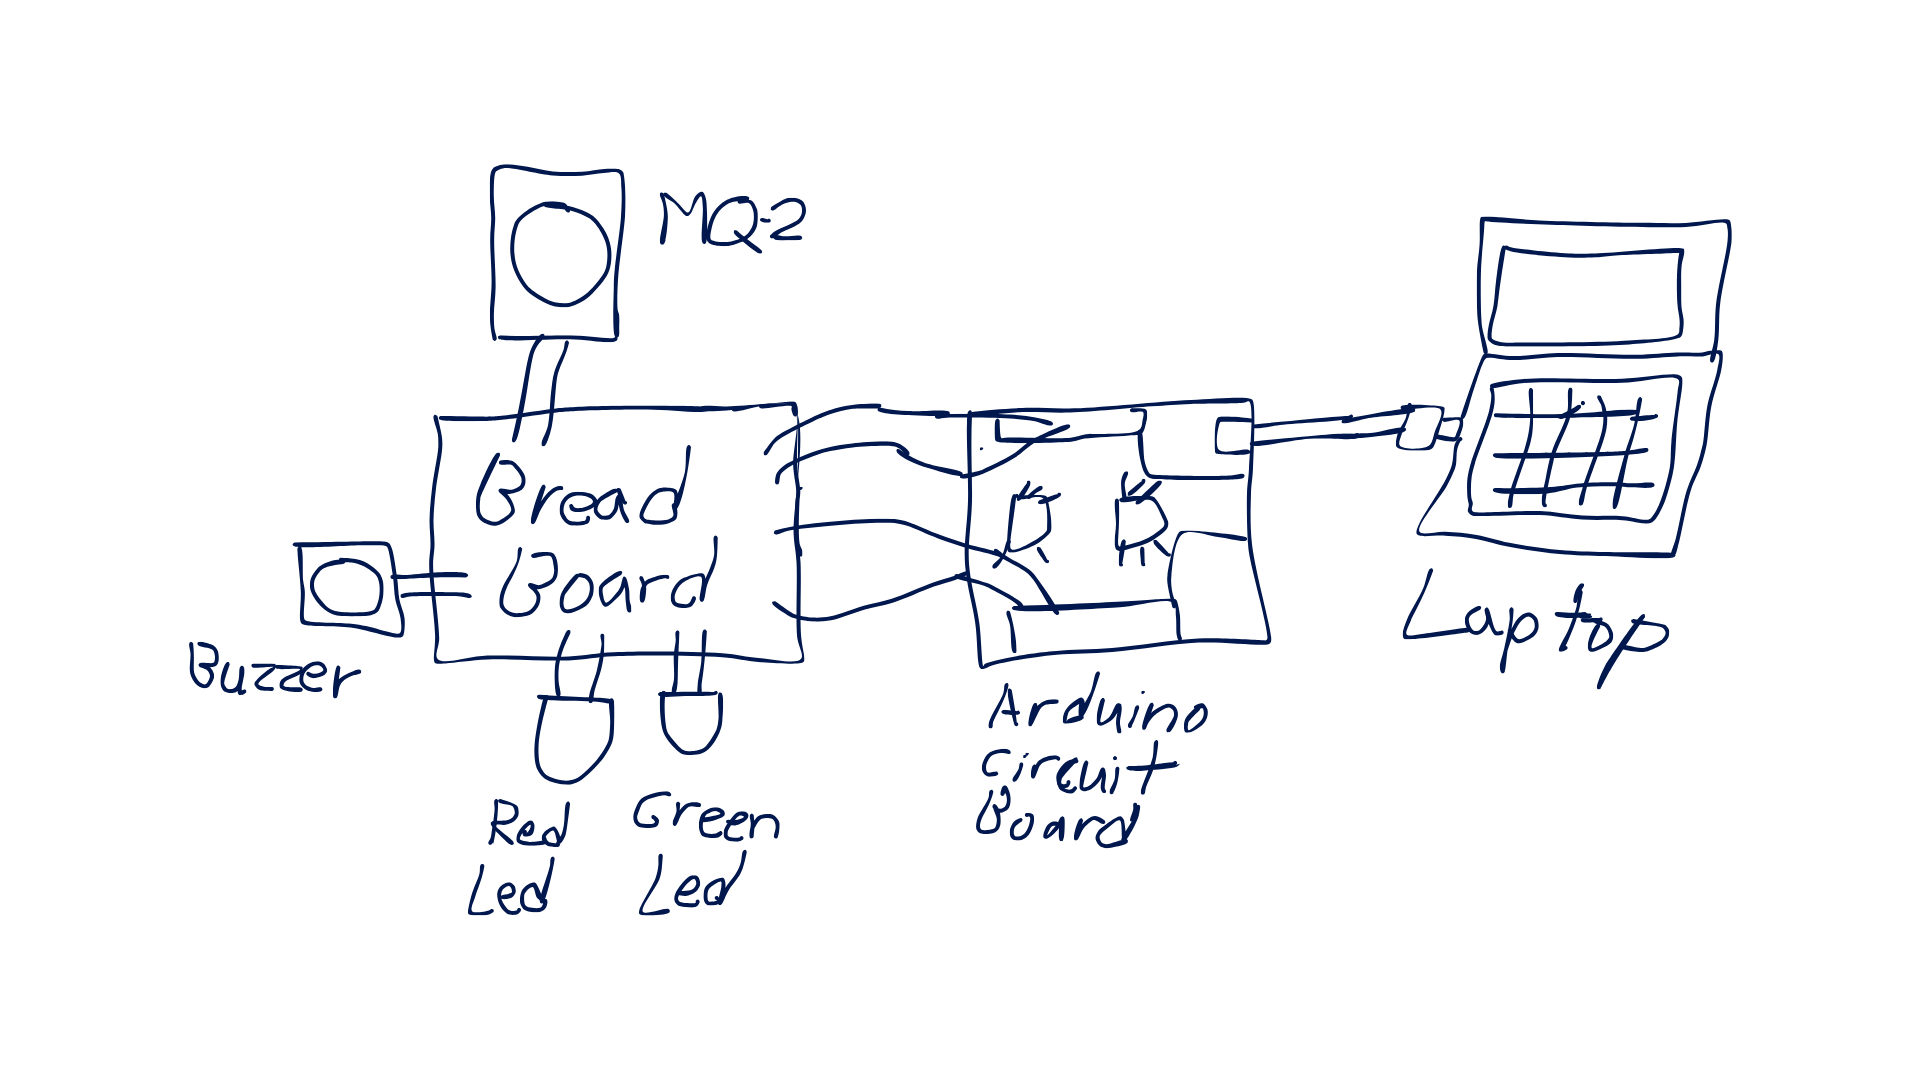 MQ-2
Bread
Board
Buzzer
Red
Led
Green
Led
Arduino
Circuit
Board
Laptop